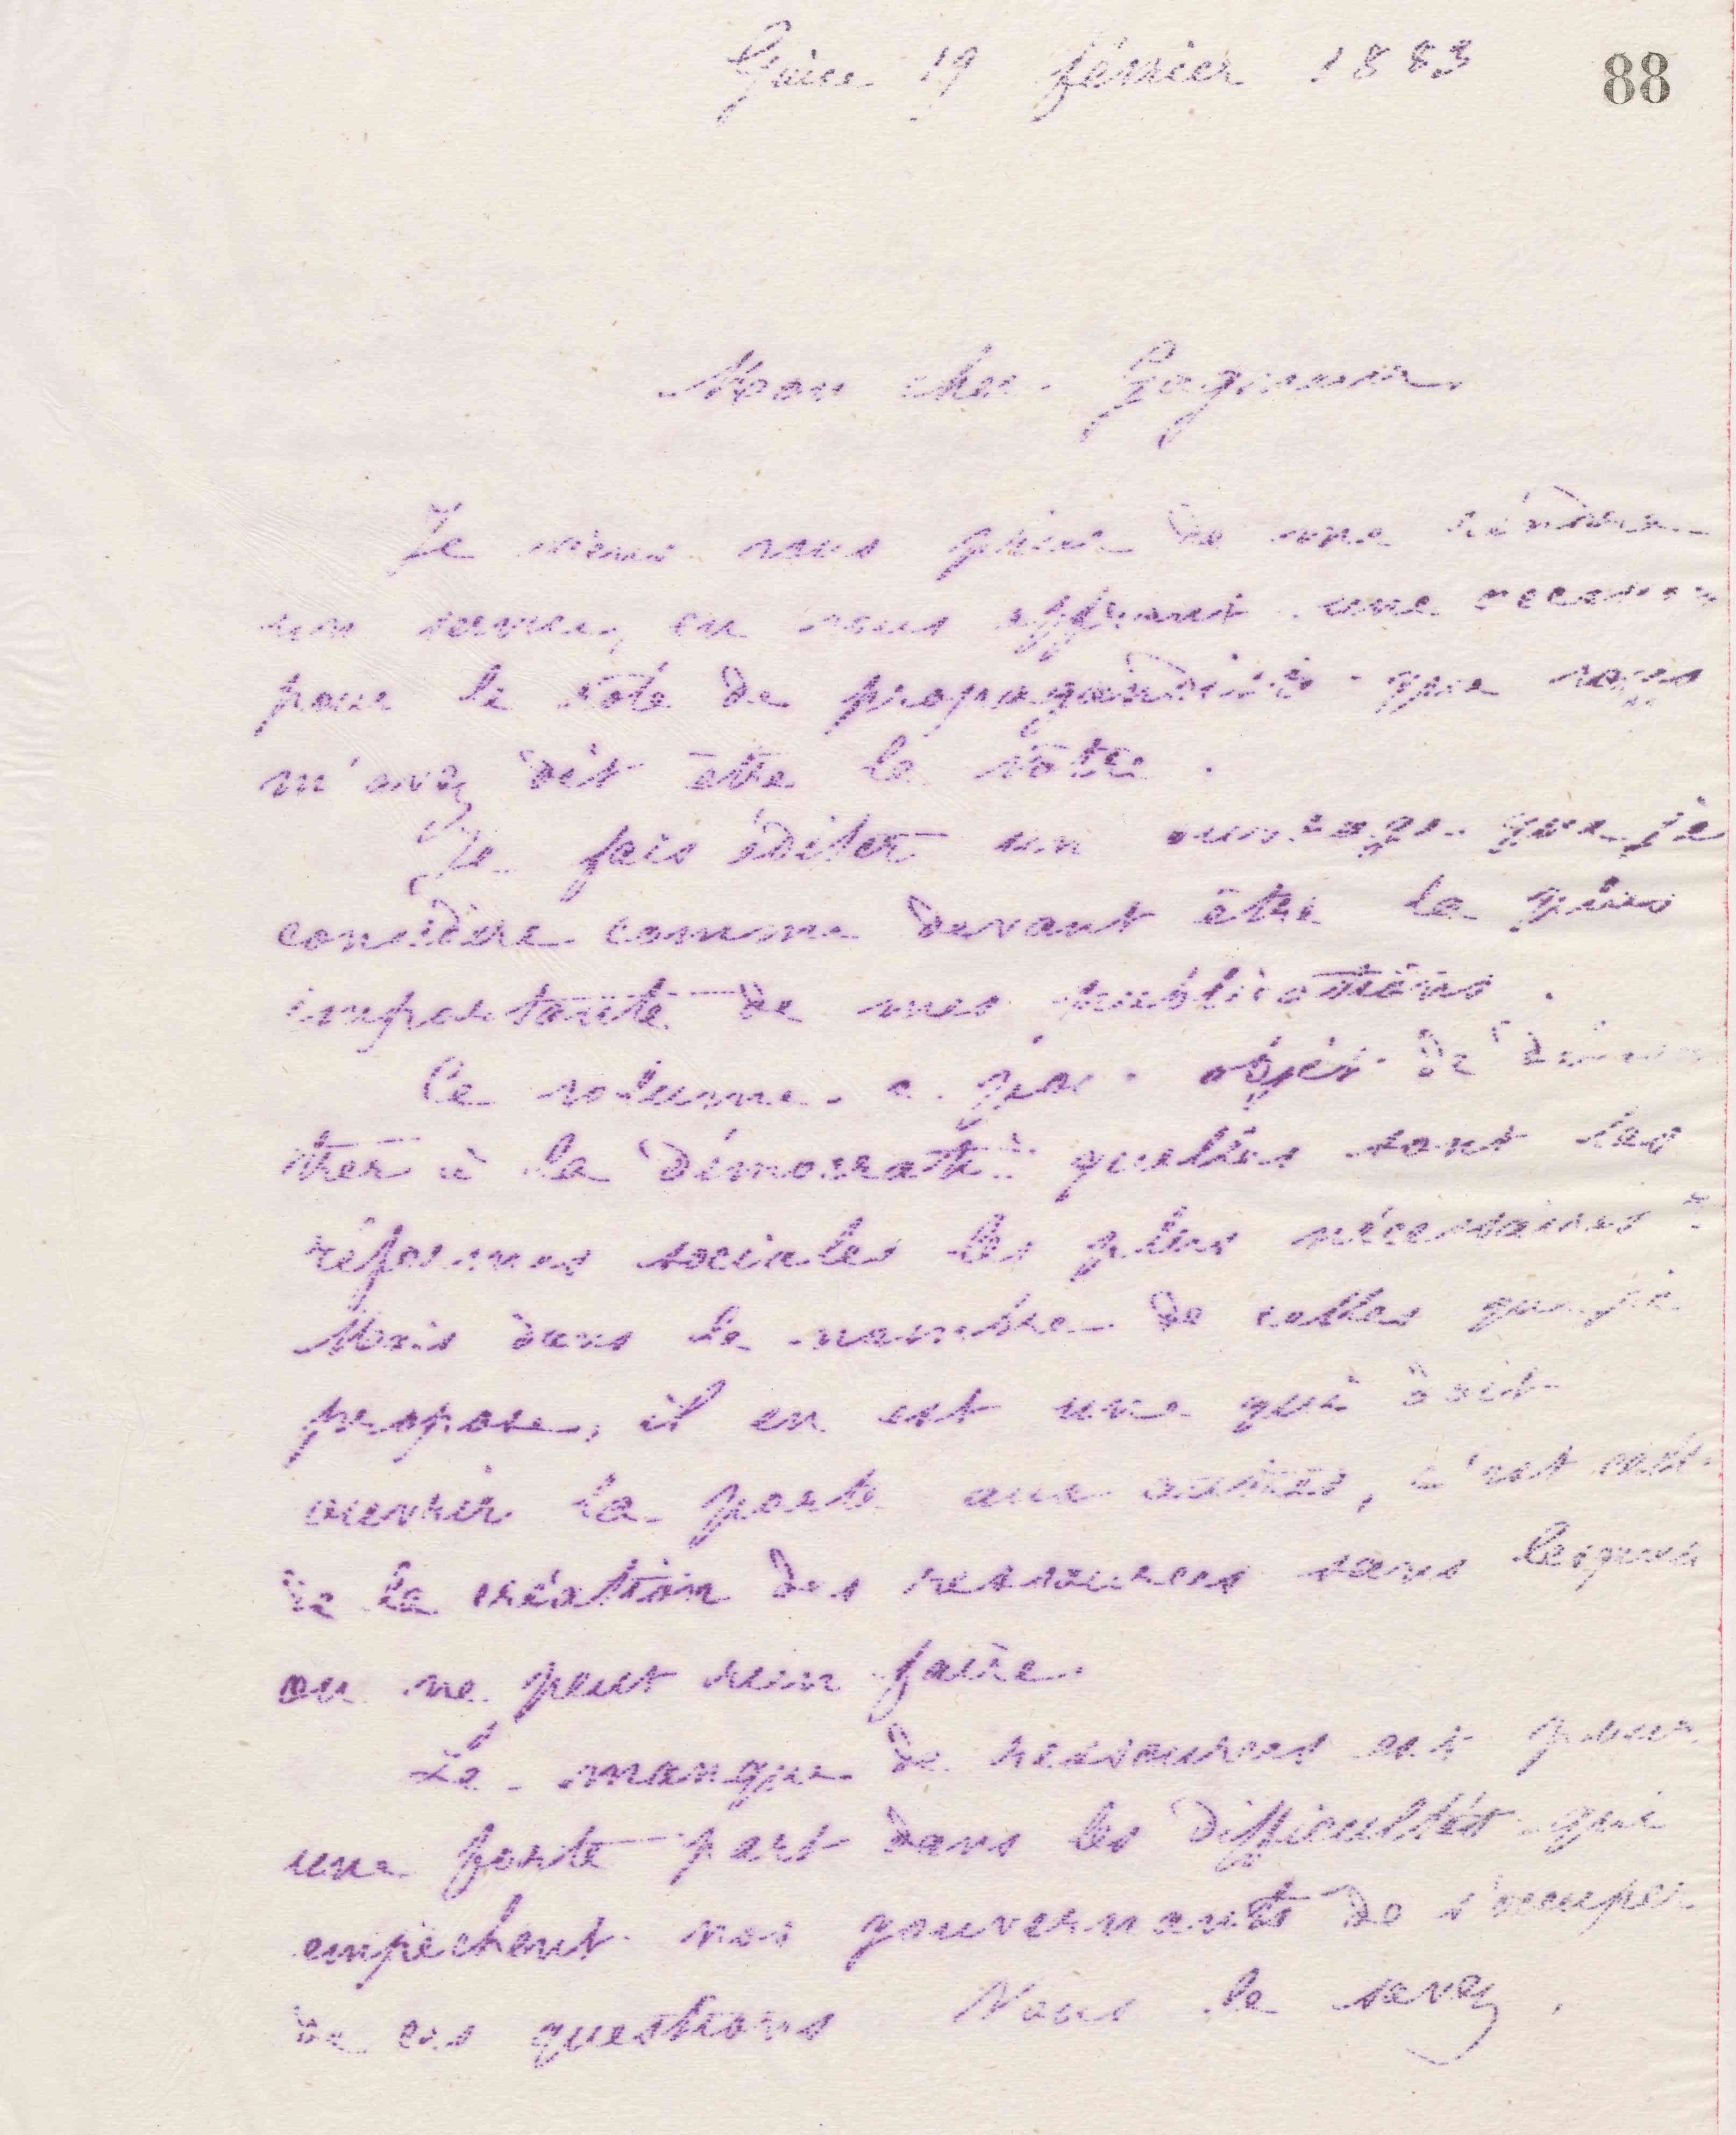 Guise 19 février 1883
88
Mon cher Gagneur
Je viens vous prier de me rendre
un service, en vous offrant une occasion
pour le rôle de propagandiste que vous
m'avez dit être le vôtre.
Je fais éditer un ouvrage que je
considère comme devant être la plus
importante de mes publications.
Ce volume a pour objet de démon
trer à la démocratie quelles sont les
réformes sociales les plus nécessaires
Mais dans le nombre de celles que je
propose, il en est une qui doit
ouvrir la porte aux autres, c'est celle
de la création des ressources sans lesquelles
on ne peut rien faire.
Le manque de ressources est pour
une forte part dans les difficultés qui
empêchent nos gouvernants de s'occuper
de ces questions Vous le savez,